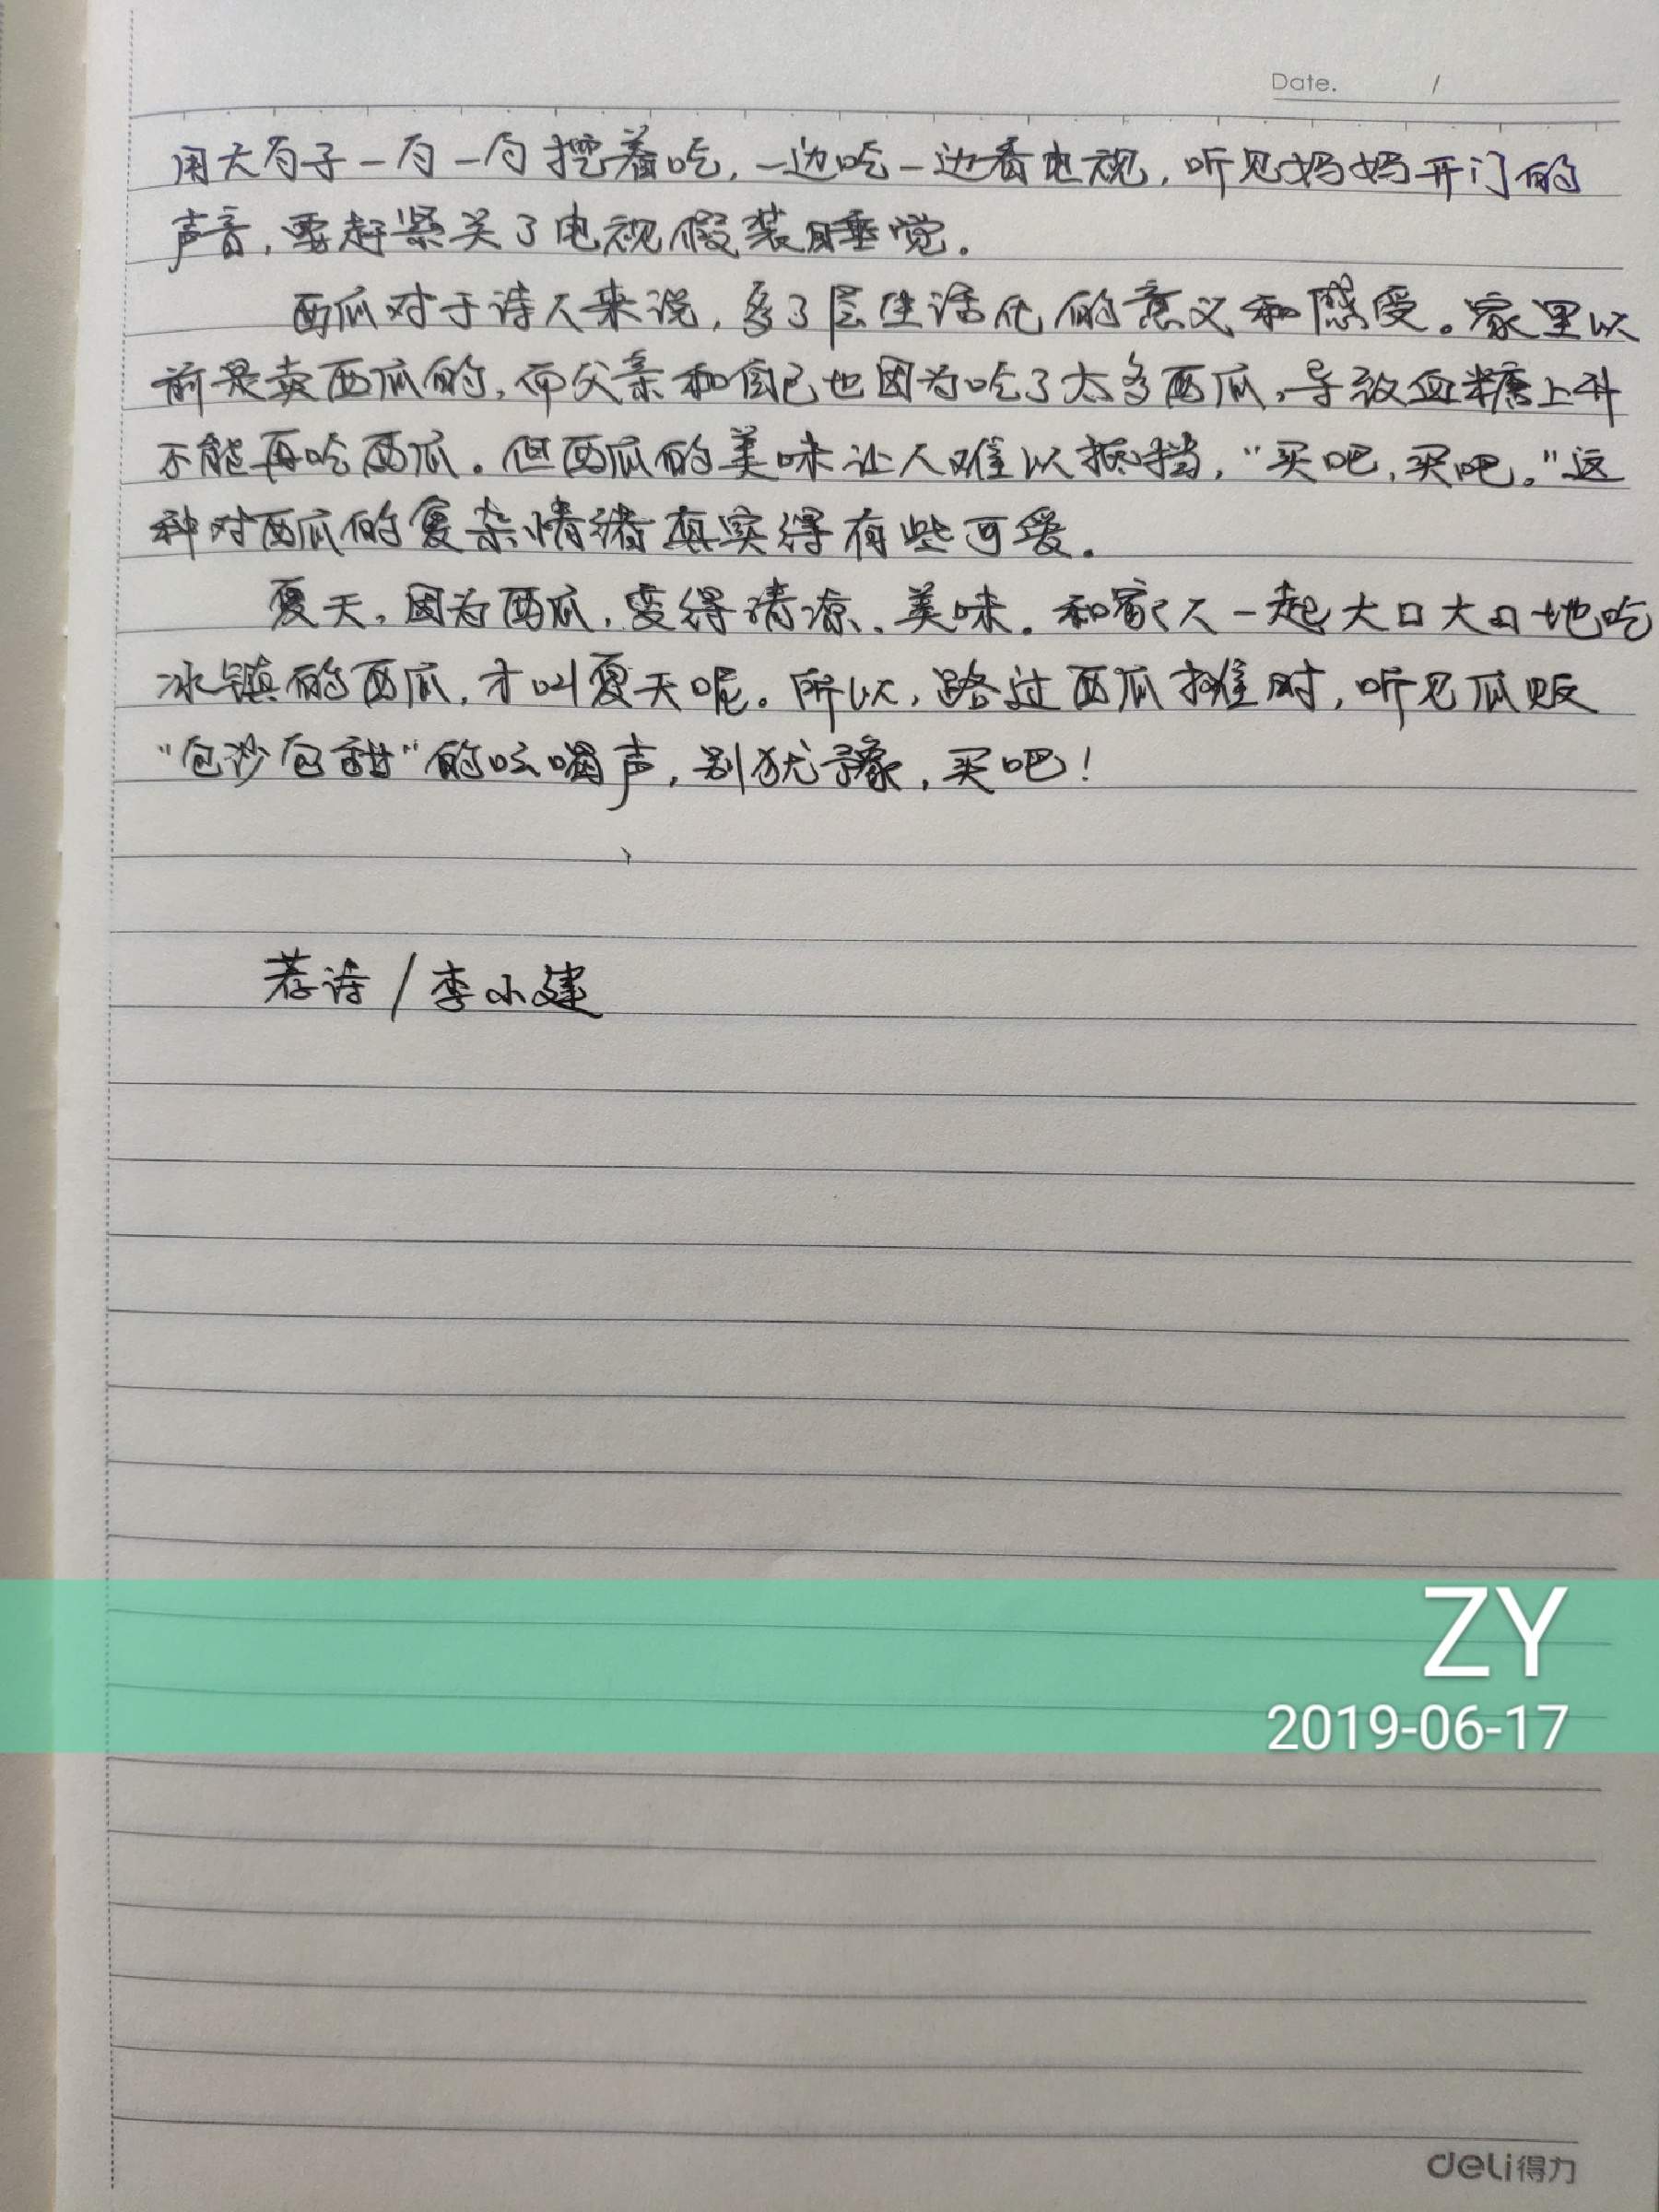 Date. /
用大勺子一勺一勺挖着吃，一边吃一边看电视，听见妈妈开门的
声音，要赶紧关了电视假装睡觉。
西瓜对于诗人来说，多了层生活化的意义和感受。家里以
前是卖西瓜的，而父亲和自己也因为吃了太多西瓜，导致血糖上升
不能再吃西瓜。但西瓜的美味让人难以抵挡，“买吧，买吧。”这
种对西瓜的复杂情绪真实得有些可爱。
夏天，因为西瓜，变得清凉、美味。和家人一起大口大口地吃
冰镇的西瓜，才叫夏天呢。所以，路过西瓜摊时，听见瓜贩
“包沙包甜”的吆喝声，别犹豫，买吧！
荐诗/李小建
ZY
2019-06-17
deli得力